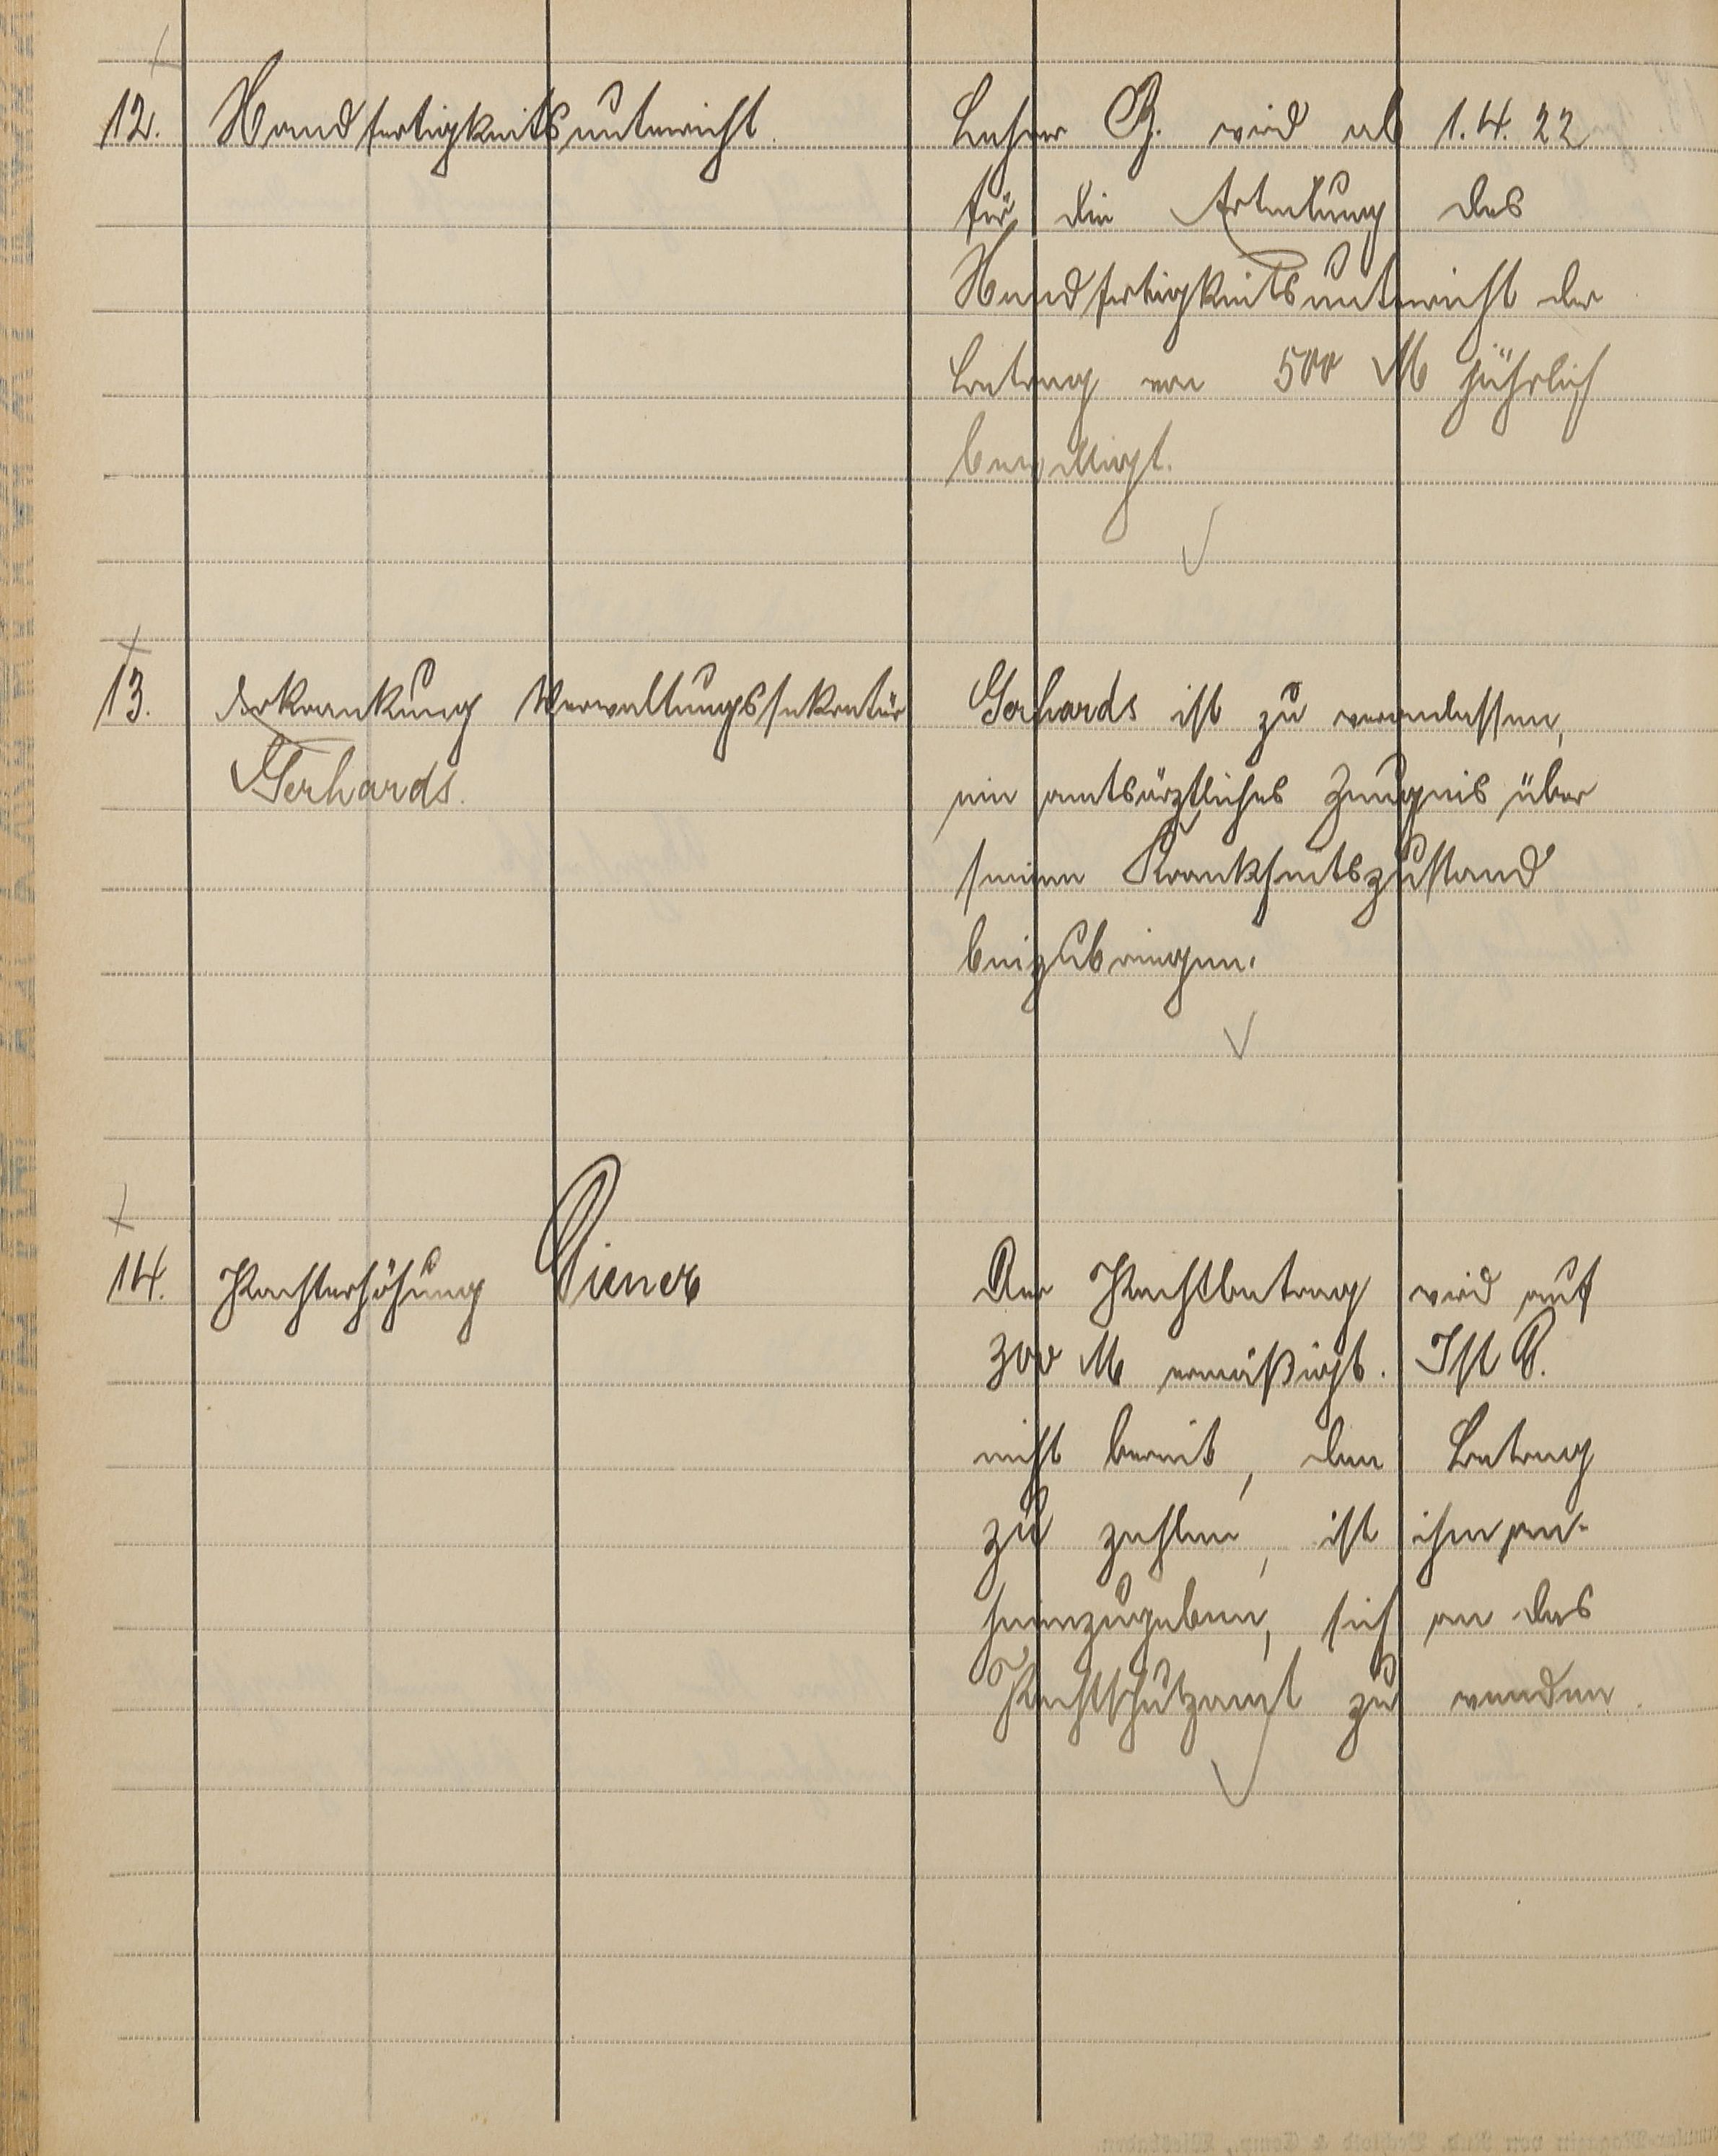 12. Handfertigkeitsunterricht.
Lehrer B. wird ab 1.4.22
für die Erteilung des
Handfertigkeitsunterricht der
Betrag von 500 M jährlich
bewilligt.
13. Erkrankung Verwaltungssekretär
Gerhards.
Gerhards ist zu veranlassen,
ein amtsärztliches Zeugnis über
seinen Krankheitszustand
beizubringen.
14. Pachterhöhung
Der Pachtbetrag wird auf
300 M ermäßigt. Ist
nicht bereit, den Betrag
zu zahlen, ist ihm an-
heimzugeben, sich an das
Pachtschutzamt zu wenden.